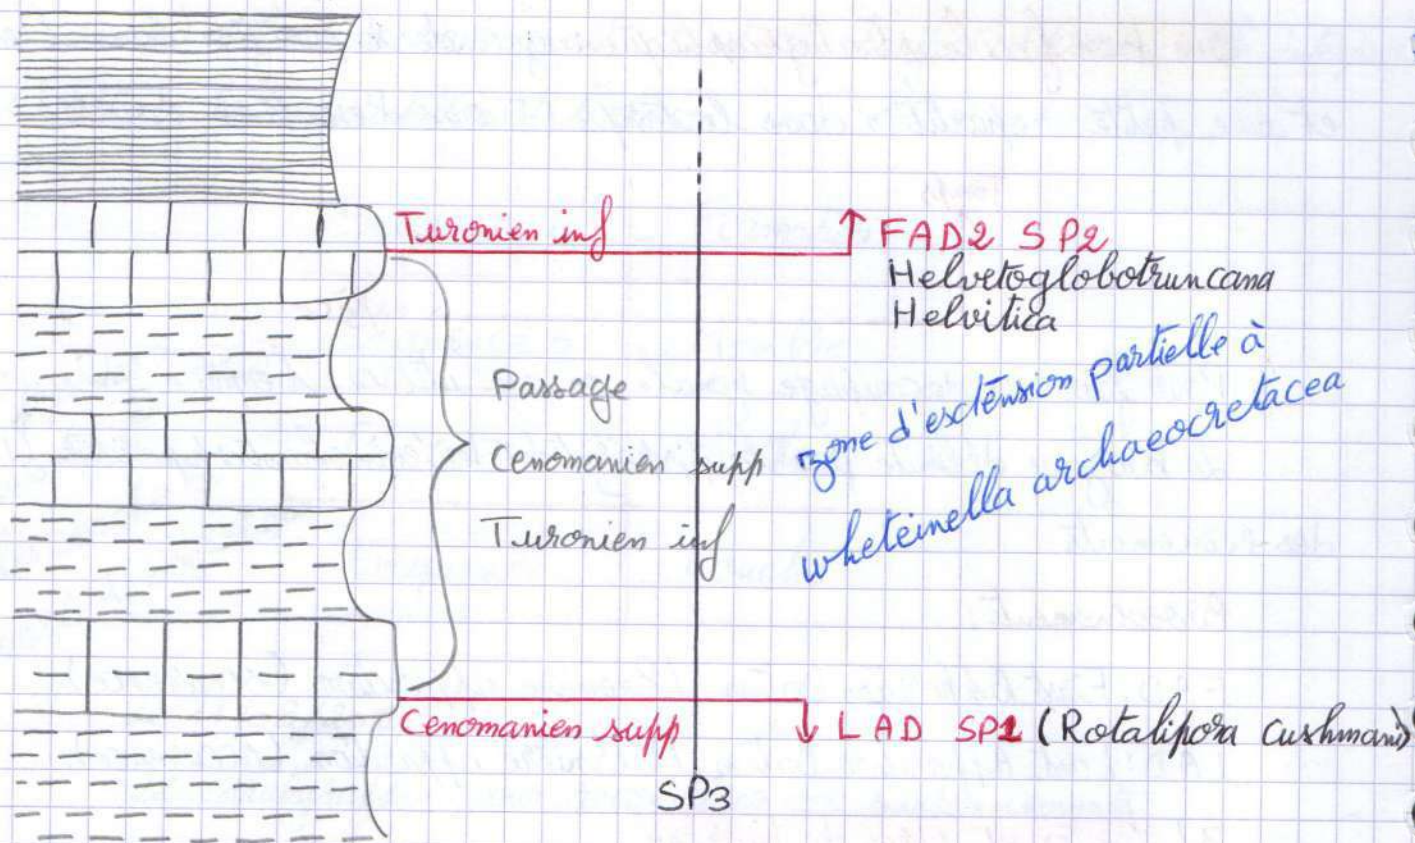 Turonien inf
FAD2 SP2
Helvetoglobotruncana
Helvitica
Passage
Cenomanien supp
Turonien inf
zone d'esctension partielle à
wheteinella archaeocretacea
Cenomanien supp
LAD SP1 (Rotalipora Cushmani)
SP3